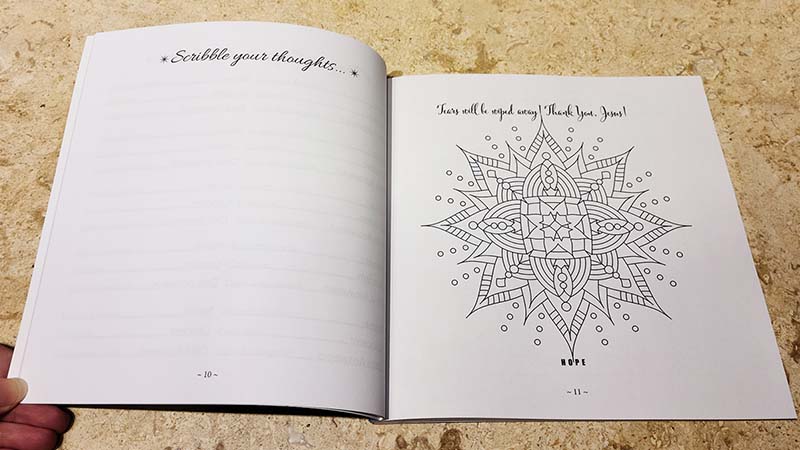 *Scribble your thoughts...*
~ 10 ~
Tears will be wiped away! Thank You, Jesus!
HOPE
~ 11 ~